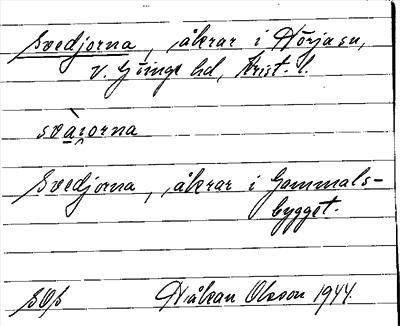 Svedjorna, åkrar i Hörja sn,
V. Göinge hd, Krist. l.
Svedjorna, åkrar i Gammals-
bygget.
Håkan Olsson 1944.